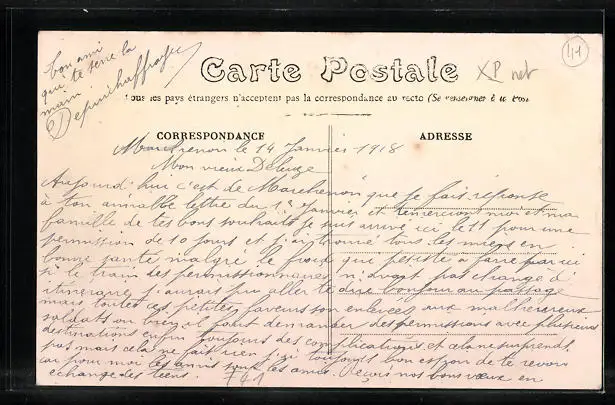 bon ami
que te serre la
main
Depinchaffraye
Carte Postale
XP net
41
Tous les pays étrangers n'acceptent pas la correspondance au recto (Se renseigner à la Poste)
CORRESPONDANCE
ADRESSE
Marchenon le 14 Janvier 1918
Mon vieux Deleuze
Aujourd'hui c'est de Marchenon que je fais réponse
à ton aimable lettre du 1er Janvier et remercions moi et ma
famille de tes bons souhaits je suis arrivé ici le 11 pour une
permission de 10 jours et j'ai trouvé tous les miens en
bonne santé malgré le froid qui persiste à faire par ici
si le train des permissionnaires n'avait pas changé d'
itinéraire j'aurais pu aller te dire bonjour au passage
mais toutes ces petites faveurs son enlevées aux malheureux
soldats ou bien il faut demander des permissions avec plusieurs
destinations enfin toujours des complications et cela ne surprend
pas mais cela ne fait rien j'ai toujours bon espoir de te revoir
car pour moi les amis sont les amis. Reçois nos bons vœux en
échange des tiens. 741